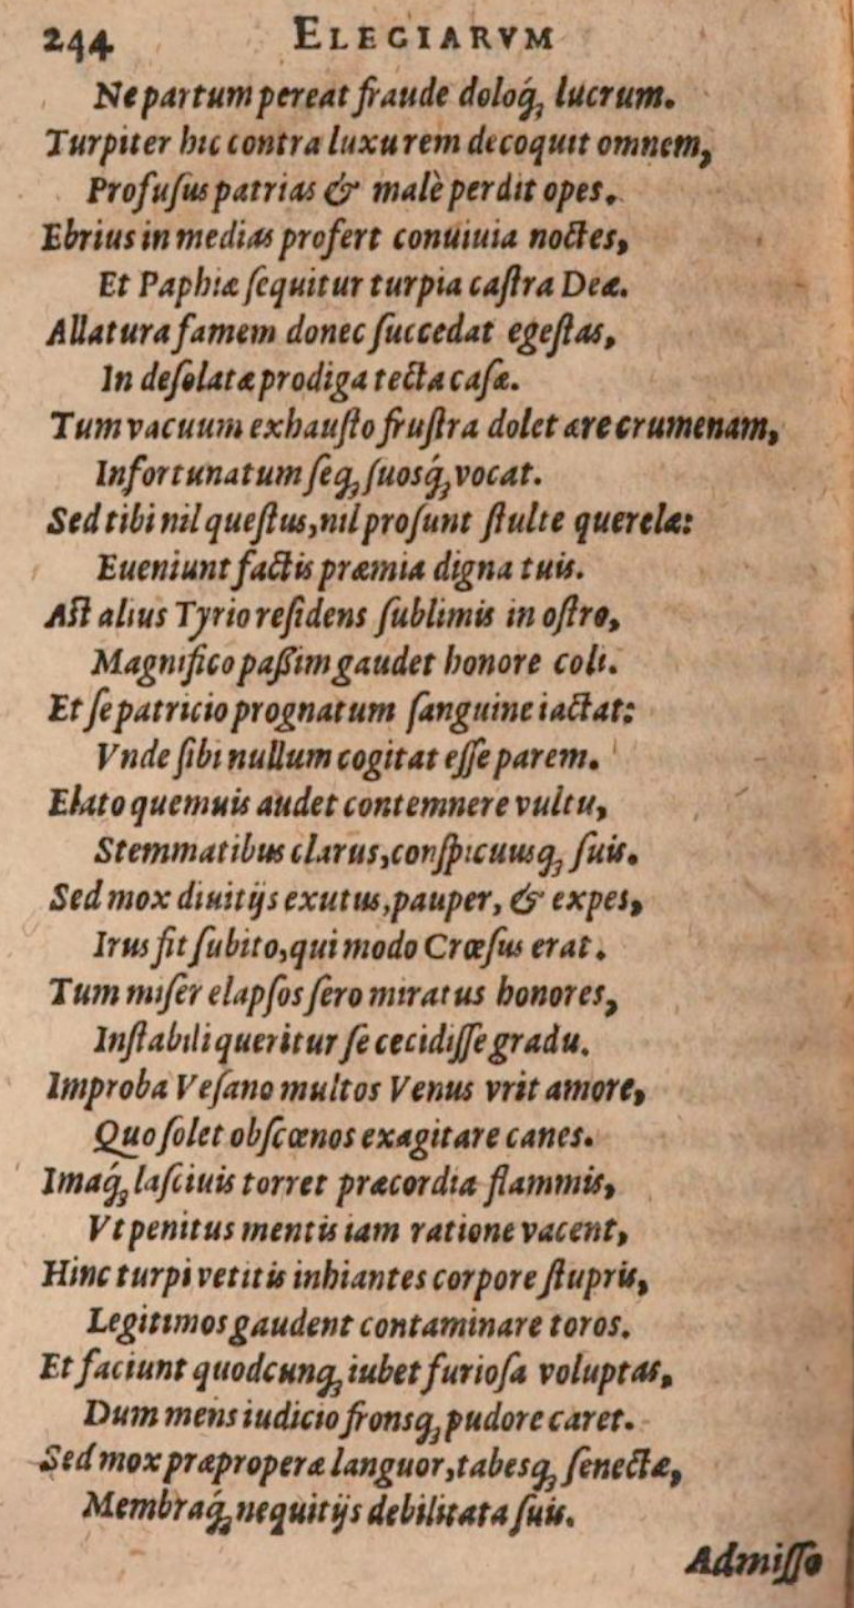 244 ELEGIARVM
Ne partum pereat fraude doloq́; lucrum.
Turpiter hic contra luxu rem decoquit omnem,
Profuſus patrias & malè perdit opes.
Ebrius in medias profert conuiuia noctes,
Et Paphiæ ſequitur turpia caſtra Deæ.
Allatura famem donec ſuccedat egeſtas,
In deſolatæ prodiga tecta caſæ.
Tum vacuum exhauſto fruſtra dolet ære crumenam,
Infortunatum ſeq; ſuosq́; vocat.
Sed tibi nil queſtus, nil proſunt ſtulte querelæ:
Eueniunt factis præmia digna tuis.
Aſt alius Tyrio reſidens ſublimis in oſtro,
Magnifico paßim gaudet honore coli.
Et ſe patricio prognatum ſanguine iactat:
Vnde ſibi nullum cogitat eſſe parem.
Elato quemuis audet contemnere vultu,
Stemmatibus clarus, conſpicuusq; ſuis.
Sed mox diuitijs exutus, pauper, & expes,
Irus fit ſubito, qui modo Crœſus erat.
Tum miſer elapſos ſero miratus honores,
Inſtabili queritur ſe cecidiſſe gradu.
Improba Veſano multos Venus vrit amore,
Quo ſolet obſcœnos exagitare canes.
Imaq́; laſciuis torret præcordia flammis,
Vt penitus mentis iam ratione vacent,
Hinc turpi vetitis inhiantes corpore ſtupris,
Legitimos gaudent contaminare toros.
Et faciunt quodcunq; iubet furioſa voluptas,
Dum mens iudicio fronsq; pudore caret.
Sed mox præproperæ languor, tabesq; ſenectæ,
Membraq́; nequitijs debilitata ſuis.
Admiſſo